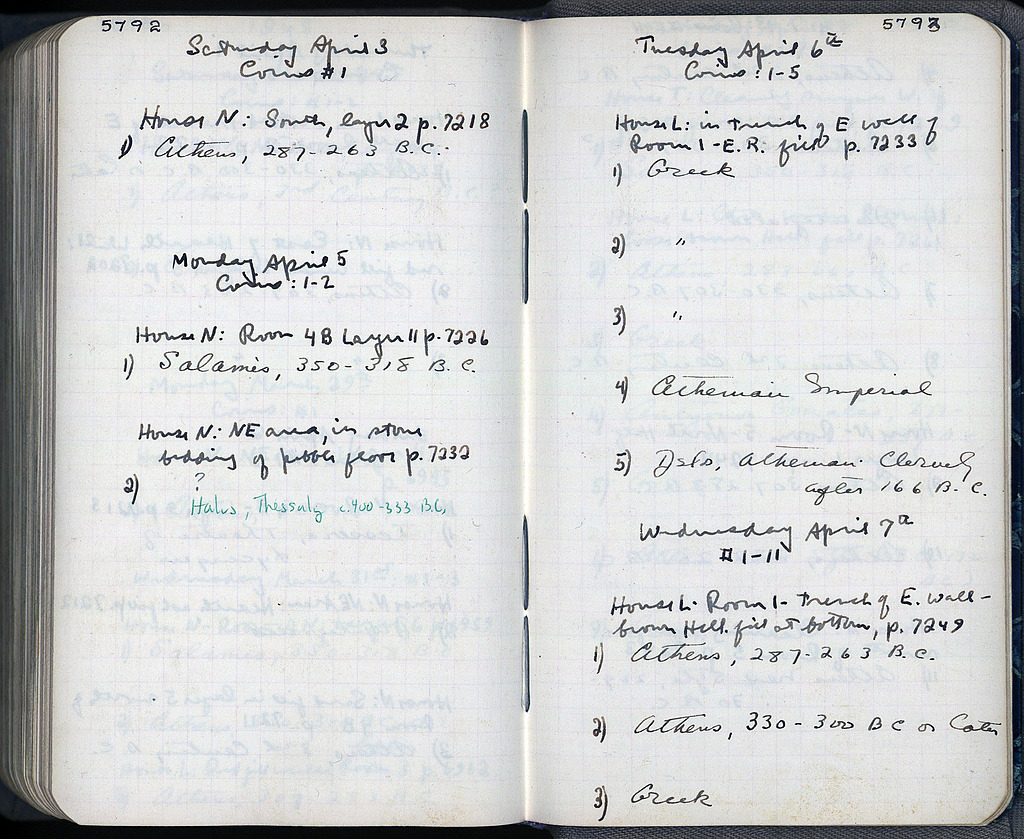 5792
Saturday April 3
Coins #1
House N: South, layer 2 p. 7218
1) Athens, 287-263 B.C.
Monday April 5
Coins: 1-2
House N: Room 4B Layer II p. 7226
1) Salamis, 350-318 B.C.
House N: NE area, in stone
bedding of pebble floor p. 7232
2) ?
Halus, Thessaly c. 400-333 B.C.
5793
Tuesday April 6th
Coins: 1-5
House L: in trench of E wall of
Room 1 - E.R. fill p. 7233
1) Greek
2) "
3) "
4) Athenian Imperial
5) Delos, Athenian Cleruchy
after 166 B.C.
Wednesday April 7th
#1-11
House L: Room 1 - Trench of E. wall -
brown Hell. fill at bottom, p. 7249
1) Athens, 287-263 B.C.
2) Athens, 330-300 BC or Later
3) Greek